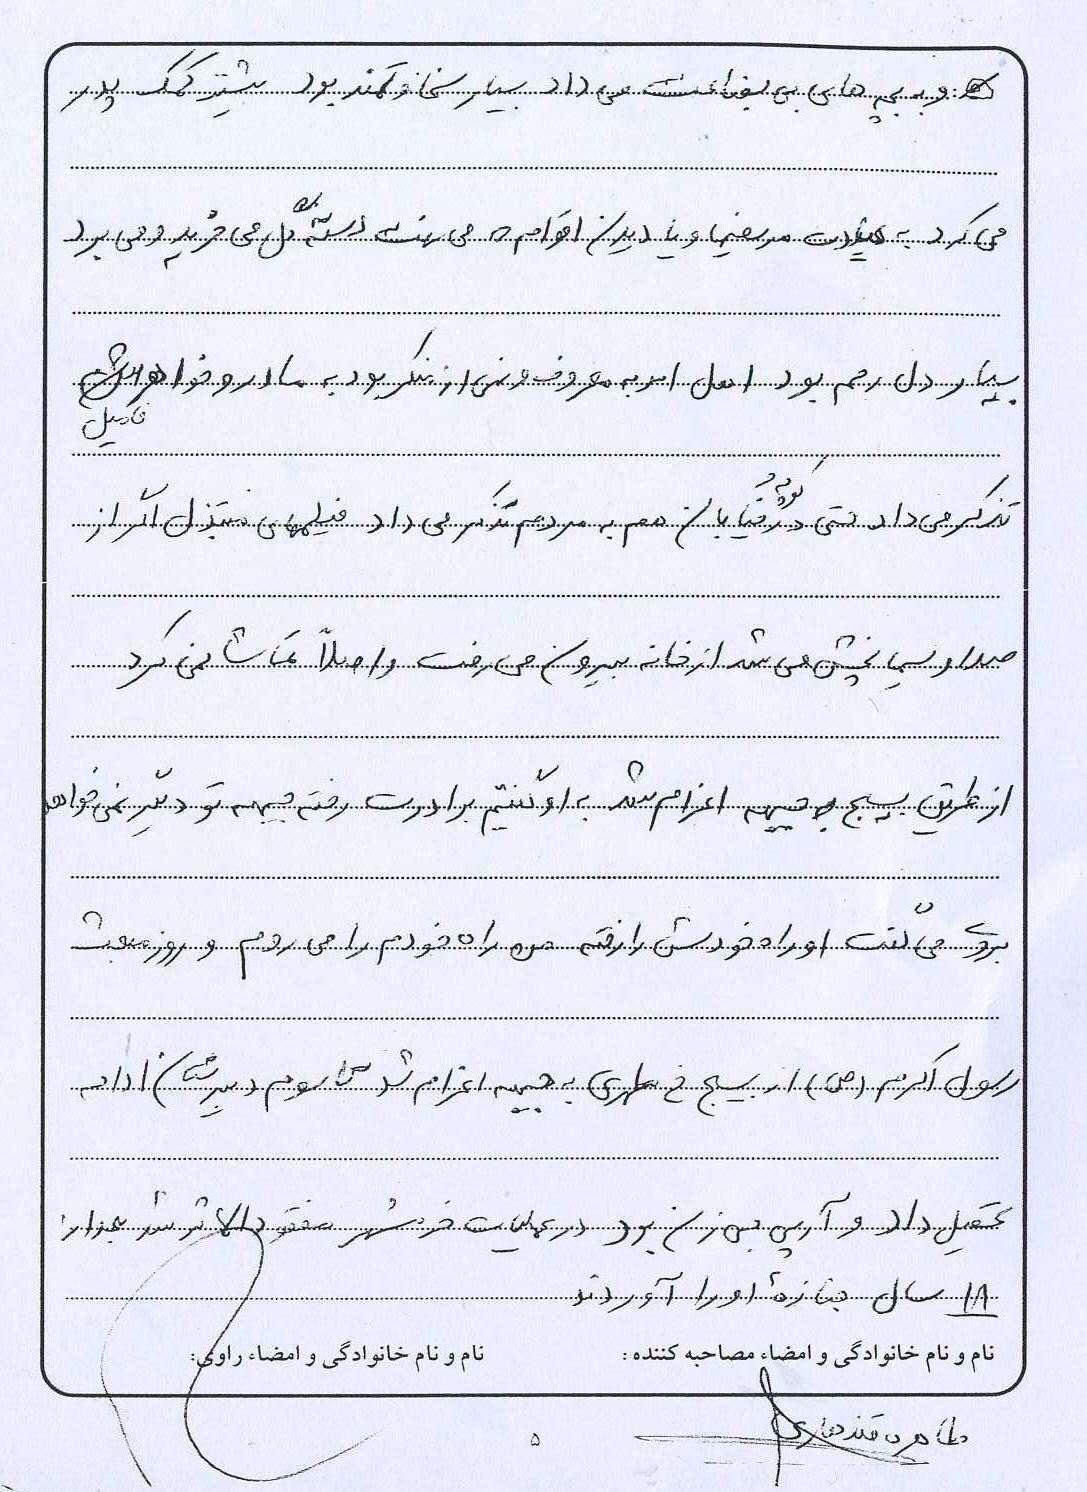 و به بچه های بی بضاعت می داد بسیار سخاوتمند بود بیشتر کمک پدر
می کرد به عیادت مریضها و یا دیدن اقوام که می رفت دسته گل می خرید و می برد
بسیار دل رحم بود اهل امر به معروف و نهی از منکر بود به مادر و خواهرش
فامیل
تذکر می داد حتی در کوچه و خیابان هم به مردم تذکر می داد فیلمهای مبتذل اگر از
صدا و سیما پخش می شد از خانه بیرون می رفت و اصلاً تماشا نمی کرد
از طریق بسیج به جبهه اعزام شد به او گفتیم برادرت رفته جبهه تو دیگر نمی خواهد
بروی می گفت او راه خودش را رفته من راه خودم را می روم و روز مبعث
رسول اکرم (ص) از بسیج خ مطهری به جبهه اعزام شد تا سوم دبیرستان ادامه
تحصیل داد و آرپی جی زن بود در عملیات خرمشهر مفقودالاثر شد بعد از
۱۸ سال جنازهٔ او را آوردند
نام و نام خانوادگی و امضاء مصاحبه کننده : نام و نام خانوادگی و امضاء راوی:
طاهره قندهاری
۵